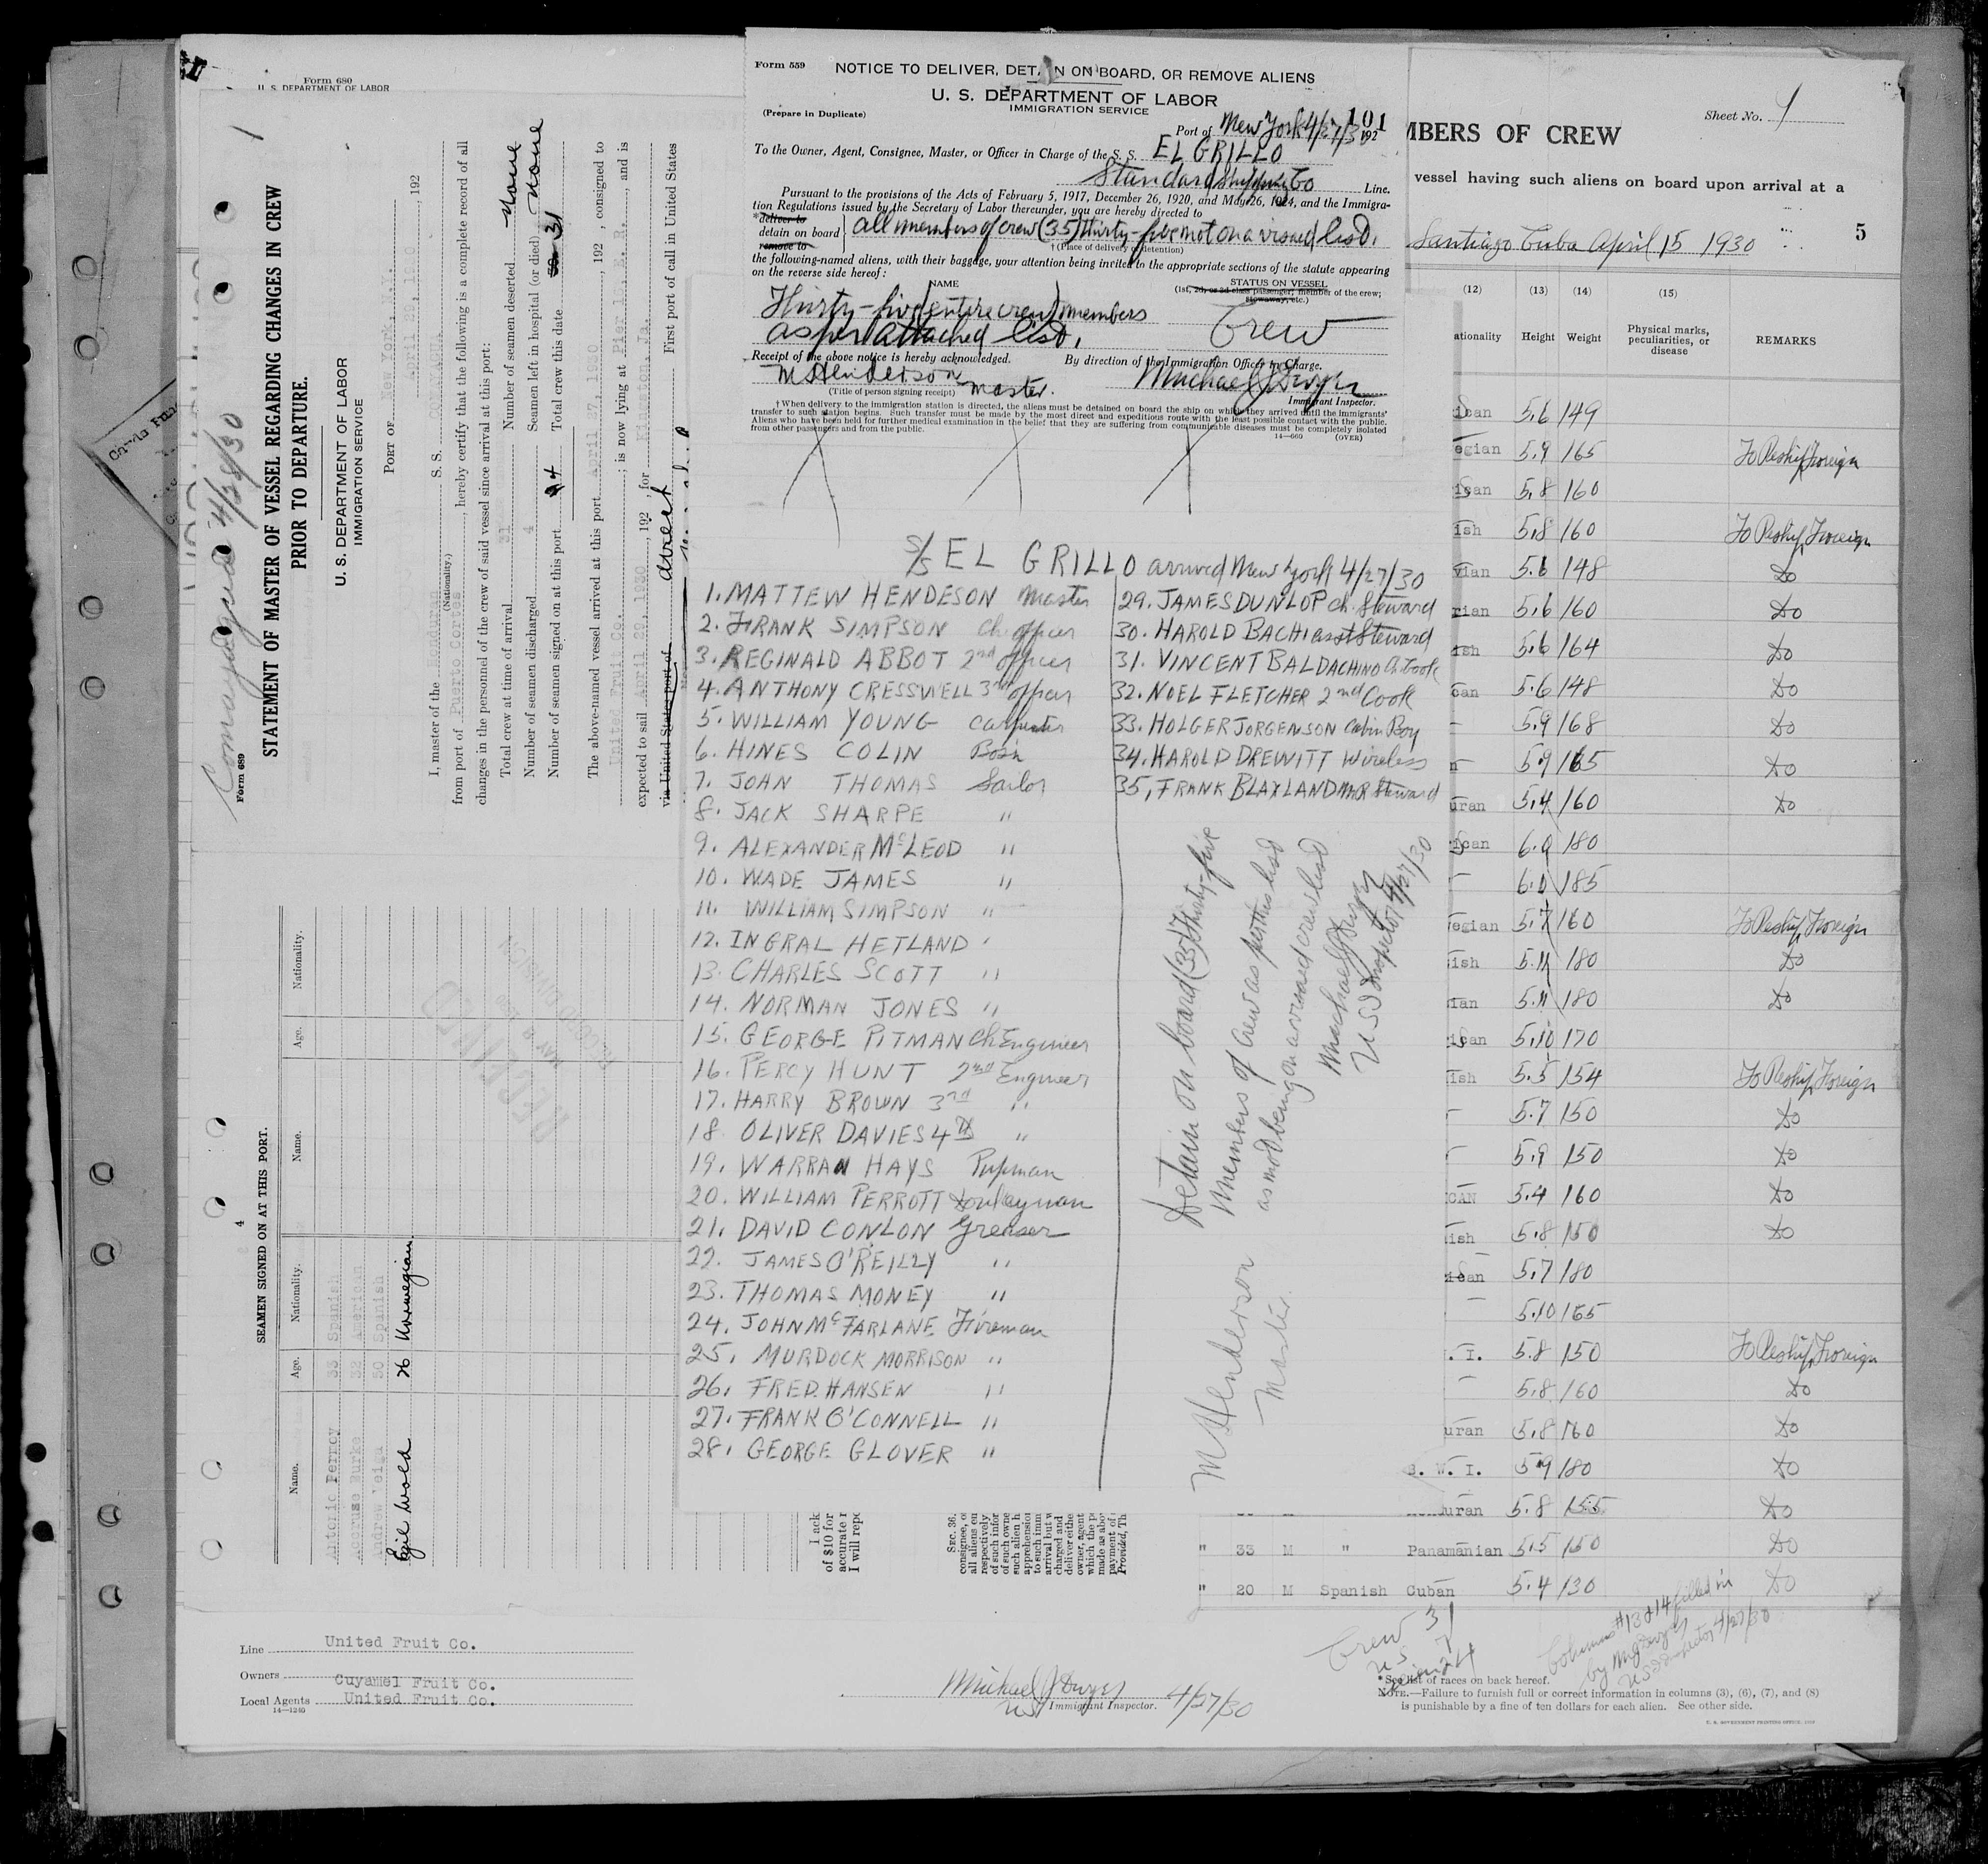 Form 680
U. S. DEPARTMENT OF LABOR
1
Comayagua 4/28/30
Form 689
STATEMENT OF MASTER OF VESSEL REGARDING CHANGES IN CREW
PRIOR TO DEPARTURE.
U. S. DEPARTMENT OF LABOR
IMMIGRATION SERVICE
PORT OF New York, N.Y.
April 29, 1930, 192
I, master of the Honduran S. S.
(Nationality.)
from port of Puerto Cortes, hereby certify that the following is a complete record of all
changes in the personnel of the crew of said vessel since arrival at this port:
Total crew at time of arrival 31 Number of seamen deserted None
Number of seamen discharged 4 Seamen left in hospital (or died) None
Number of seamen signed on at this port 4 Total crew this date 31
The above-named vessel arrived at this port April 27, 1930, 192 , consigned to
United Fruit Co. ; is now lying at Pier 1, E. R., and is
expected to sail April 29, 1930, 192 , for Kingston, Ja. First port of call in United States
via United States port of direct
4
SEAMEN SIGNED ON AT THIS PORT.
Name. Age. Nationality. Name. Age. Nationality.
Antonio Ferroy 33 Spanish
Burke 32 American
Andrew Veiga 50 Spanish
Egil Wold 26 Norwegian
RECEIVED
MAY 8 1930
RECORD DIVISION
Line United Fruit Co.
Owners Cuyamel Fruit Co.
Local Agents United Fruit Co.
14—1240
Form 559
NOTICE TO DELIVER, DETAIN ON BOARD, OR REMOVE ALIENS
U. S. DEPARTMENT OF LABOR
IMMIGRATION SERVICE
(Prepare in Duplicate)
101
Port of New York 4/27/30 192
To the Owner, Agent, Consignee, Master, or Officer in Charge of the S. S. EL GRILLO
Standard Shipping Co Line.
Pursuant to the provisions of the Acts of February 5, 1917, December 26, 1920, and May 26, 1924, and the Immigra-
tion Regulations issued by the Secretary of Labor thereunder, you are hereby directed to
*deliver to
detain on board all members of crew (35) thirty-five not on a visaed list.
remove to
† (Place of delivery or detention)
the following-named aliens, with their baggage, your attention being invited to the appropriate sections of the statute appearing
on the reverse side hereof:
NAME STATUS ON VESSEL
(1st, 2d, or 3d class passenger; member of the crew;
stowaway, etc.)
Thirty-five entire crew members Crew
as per attached list.
Receipt of the above notice is hereby acknowledged. By direction of the Immigration Officer in Charge.
M Henderson Master. Michael J Dwyer
(Title of person signing receipt) Immigrant Inspector.
† When delivery to the immigration station is directed, the aliens must be detained on board the ship on which they arrived until the immigrants'
transfer to such station begins. Such transfer must be made by the most direct and expeditious route with the least possible contact with the public.
Aliens who have been held for further medical examination in the belief that they are suffering from communicable diseases must be completely isolated
from other passengers and from the public.
14—660 (OVER)
S/S EL GRILLO arrived New York 4/27/30
1. MATTEW HENDESON Master
2. FRANK SIMPSON Ch. officer
3. REGINALD ABBOT 2nd officer
4. ANTHONY CRESSWELL 3rd officer
5. WILLIAM YOUNG Carpenter
6. HINES COLIN Bos'n
7. JOHN THOMAS Sailor
8. JACK SHARPE "
9. ALEXANDER McLEOD "
10. WADE JAMES "
11. WILLIAM SIMPSON "
12. INGRAL HETLAND "
13. CHARLES SCOTT "
14. NORMAN JONES "
15. GEORGE PITMAN Ch Engineer
16. PERCY HUNT 2nd Engineer
17. HARRY BROWN 3rd "
18 OLIVER DAVIES 4th "
19. WARRAN HAYS Pupman
20. WILLIAM PERROTT Donkeyman
21. DAVID CONLON Greaser
22. JAMES O'REILLY "
23. THOMAS MONEY "
24. JOHN McFARLANE Fireman
25. MURDOCK MORRISON "
26. FRED. HANSEN "
27. FRANK O'CONNELL "
28. GEORGE GLOVER "
29. JAMES DUNLOP ch. Steward
30. HAROLD BACHI asst Steward
31. VINCENT BALDACHINO Ch. Cook
32. NOEL FLETCHER 2nd Cook
33. HOLGER JORGENSON Cabin Boy
34. HAROLD DREWITT Wireless
35, FRANK BLAXLAND MR Steward
Detain on board (35) thirty-five
members of crew as per this list
as not being on a visaed crew list
Michael J Dwyer
U S Inspector 4/27/30
M Henderson
Master.
I ack
of $10 for
accurate r
I will repo
SEC. 36.
consignee, o
all aliens en
respectively
of such infor
of such owne
such alien h
apprehension
to such imm
arrival but w
charged and
deliver eithe
owner, agent
which the p
made as abo
payment of
Provided, Th
Michael J Dwyer 4/27/30
US Immigrant Inspector.
Sheet No. 1
MBERS OF CREW
vessel having such aliens on board upon arrival at a
5
Santiago Cuba April 15 1930
(12) (13) (14) (15)
ationality Height Weight Physical marks,
peculiarities, or
disease REMARKS
ican 5.6 149
egian 5.9 165 To Reship Foreign
ican 5.8 160
ish 5.8 160 To Reship Foreign
vian 5.6 148 Do
rian 5.6 160 Do
ish 5.6 164 Do
can 5.6 148 Do
— 5.9 168 Do
n— 5.9 165 Do
uran 5.4 160 Do
ican 6.0 180
— 6.0 185
egian 5.7 160 To Reship Foreign
ish 5.11 180 Do
ian 5.11 180 Do
ican 5.10 170
ish 5.5 154 To Reship Foreign
— 5.7 150 Do
— 5.9 150 Do
CAN 5.4 160 Do
ish 5.8 150 Do
ican 5.7 180
— 5.10 165
. I. 5.8 150 To Reship Foreign
— 5.8 160 Do
uran 5.8 160 Do
B. W. I. 5.9 180 Do
uran 5.8 155 Do
" 33 M " Panamanian 5.5 150 Do
" 20 M Spanish Cuban 5.4 130 Do
Crew 31
US 7
Alien 24
Columns #13 & 14 filled in
by M J Dwyer
US Inspector 4/27/30
*See list of races on back hereof.
NOTE.—Failure to furnish full or correct information in columns (3), (6), (7), and (8)
is punishable by a fine of ten dollars for each alien. See other side.
U. S. GOVERNMENT PRINTING OFFICE